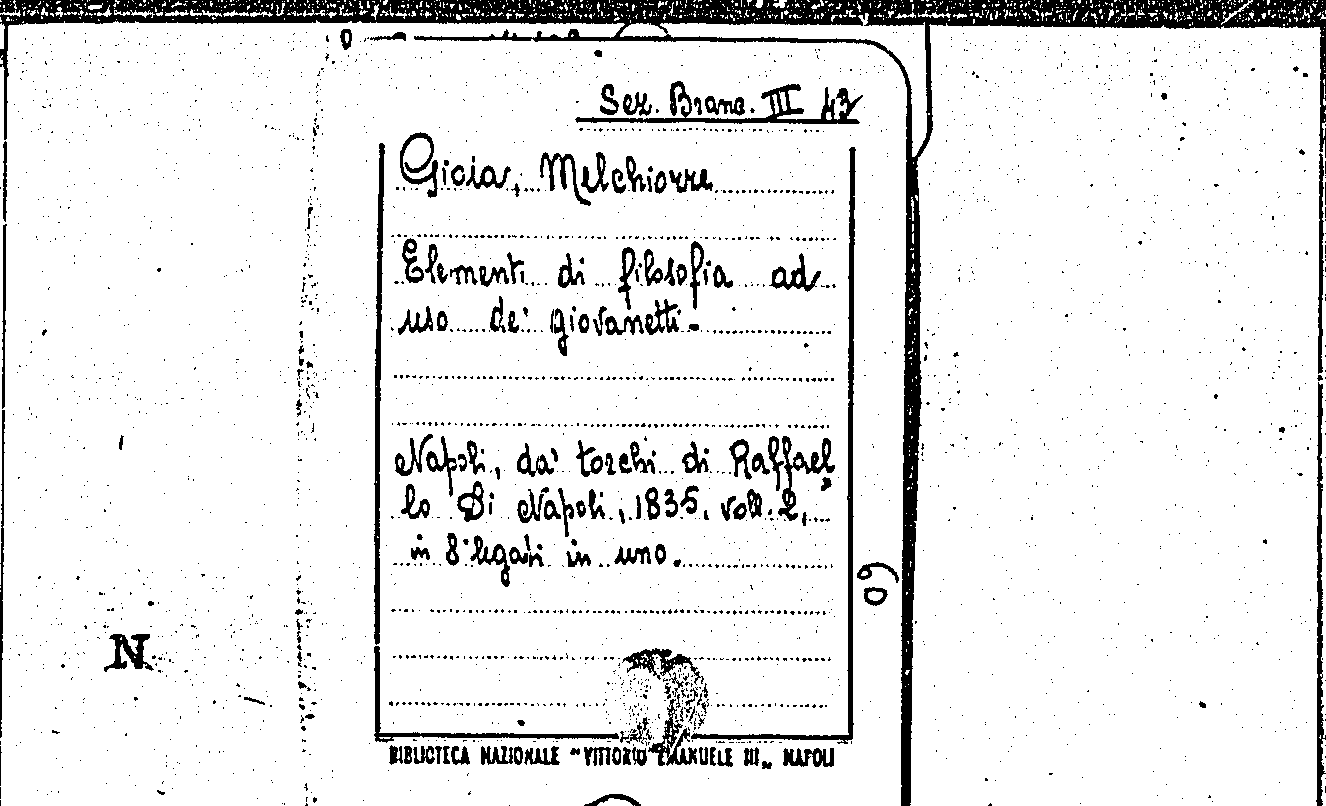 Sez. Branc. III 43
Gioia, Melchiorre
Elementi di filosofia ad
uso de' giovanetti.
Napoli, da' torchi di Raffael
lo Di Napoli, 1835, voll. 2,
in 8° legati in uno.
N
BIBLIOTECA NAZIONALE "VITTORIO EMANUELE III„ NAPOLI